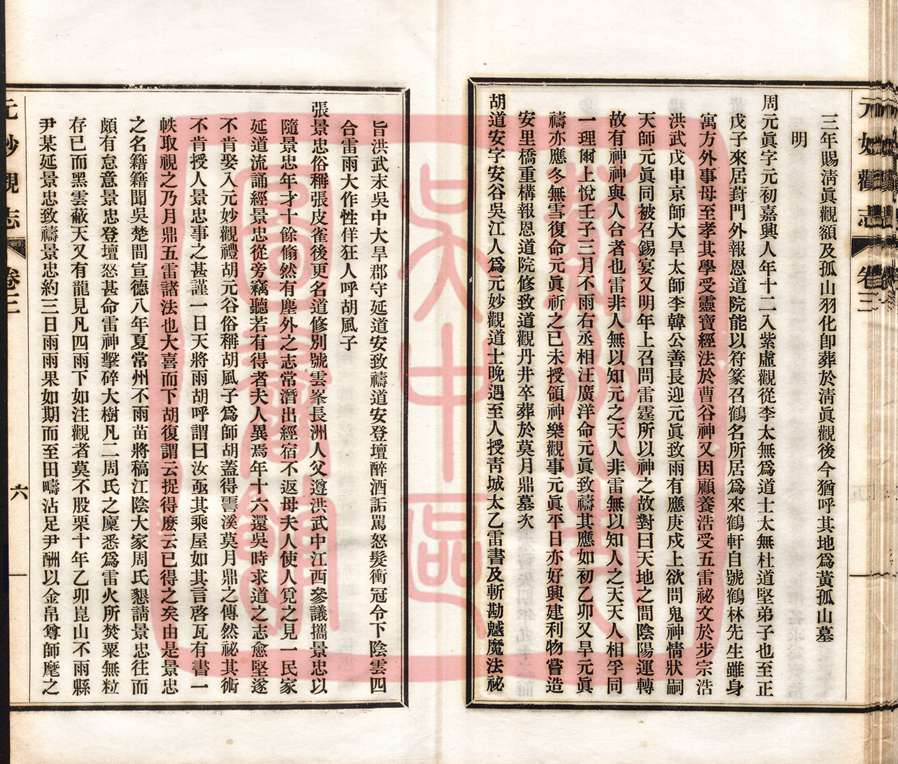 三年賜淸眞觀額及孤山羽化卽葬於淸眞觀後今猶呼其地爲黃孤山墓
明
周元眞字元初嘉興人年十二入紫虛觀從李太無爲道士太無杜道堅弟子也至正
戊子來居葑門外報恩道院能以符篆召鶴名所居爲來鶴軒自號鶴林先生雖身
寓方外事母至孝其學受靈寶經法於曹谷神又因顧養浩受五雷祕文於步宗浩
洪武戊申京師大旱太師李韓公善長迎元眞致雨有應庚戌上欲問鬼神情狀嗣
天師元眞同被召錫宴又明年上召問雷霆所以神之故對曰天地之間陰陽運轉
故有神神與人合者也雷非人無以知元之天人非雷無以知人之天天人相孚同
一理爾上悅壬子三月不雨右丞相汪廣洋命元眞致禱其應如初乙卯又旱元眞
禱亦應冬無雪復命元眞祈之已未授領神樂觀事元眞平日亦好興建利物嘗造
安里橋重構報恩道院修致道觀丹井卒葬於莫月鼎墓次
胡道安字安谷吳江人爲元妙觀道士晚遇至人授靑城太乙雷書及斬勘魑魔法祕
元妙觀志
卷三
旨洪武末吳中大旱郡守延道安致禱道安登壇醉酒詬罵怒髮衝冠令下陰雲四
合雷雨大作性佯狂人呼胡風子
張景忠俗稱張皮雀後更名道修別號雲峯長洲人父遵洪武中江西參議攜景忠以
隨景忠年才十餘翛然有塵外之志常潛出經宿不返母夫人使人覓之見一民家
延道流誦經景忠從旁竊聽若有得者夫人異焉年十六還吳時求道之志愈堅遂
不肯娶入元妙觀禮胡元谷俗稱胡風子爲師胡蓋得霅溪莫月鼎之傳然祕其術
不肯授人景忠事之甚謹一日天將雨胡呼謂曰汝亟其乘屋如其言啓瓦有書一
帙取視之乃月鼎五雷諸法也大喜而下胡復謂云捉得麽云已得之矣由是景忠
之名籍籍聞吳楚間宣德八年夏常州不雨苗將稿江陰大家周氏懇請景忠往而
頗有怠意景忠登壇怒甚命雷神擊碎大樹凡二周氏之廩悉爲雷火所焚粟無粒
存已而黑雲蔽天又有龍見凡四雨下如注觀者莫不股栗十年乙卯崑山不雨縣
尹某延景忠致禱景忠約三日雨雨果如期而至田疇沾足尹酬以金帛尊師麾之
元妙觀志
卷三
六
吳中區